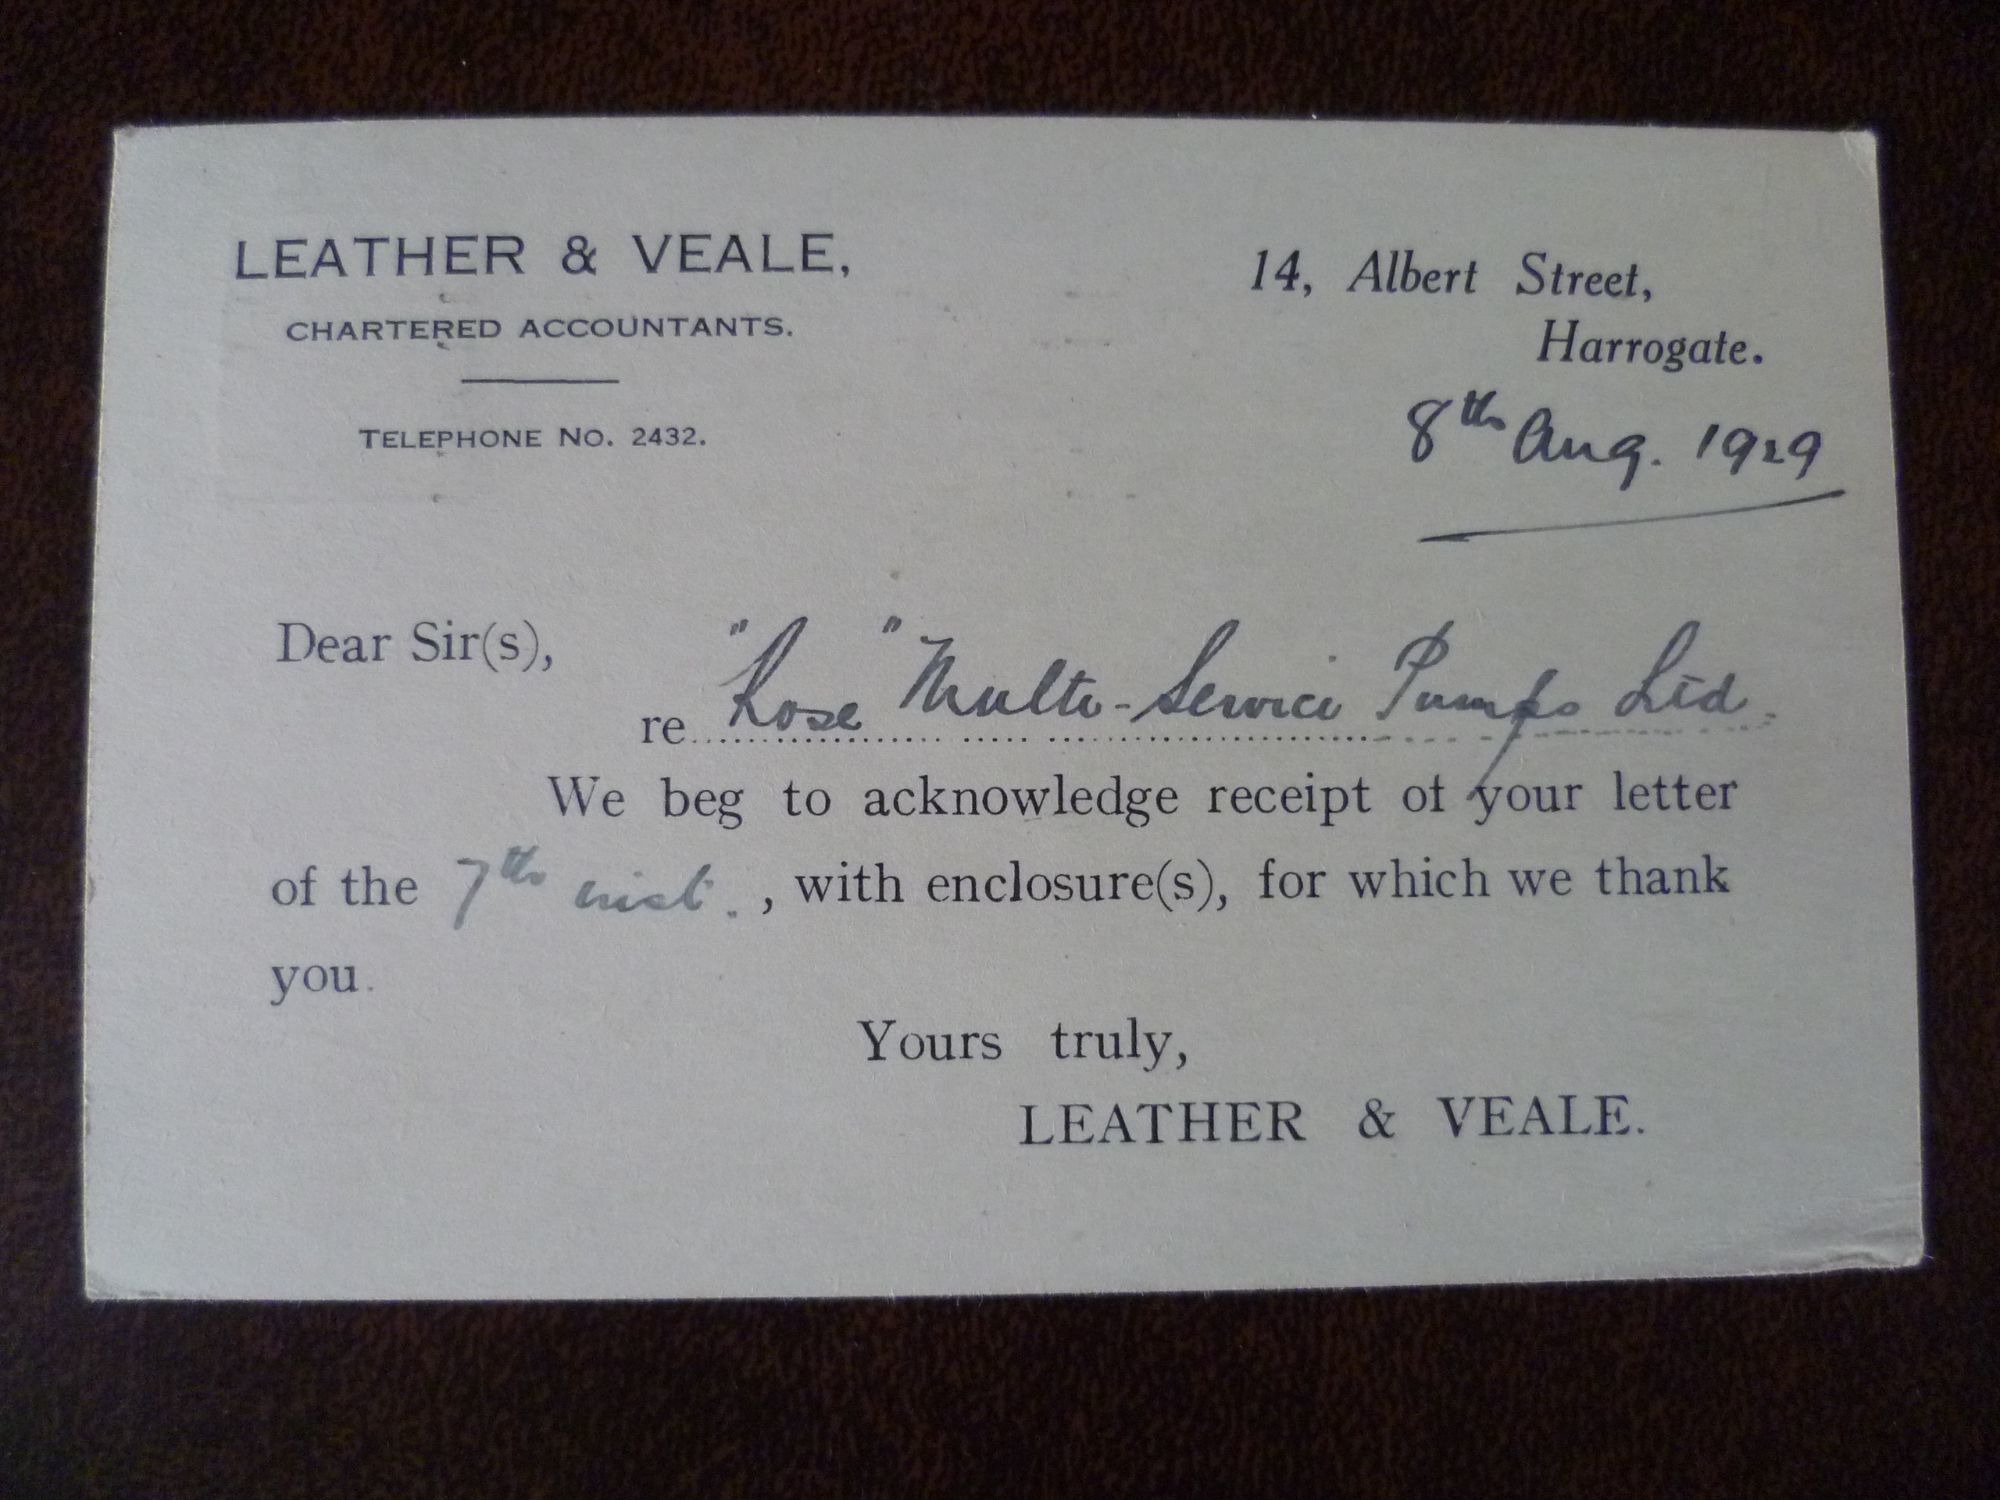 LEATHER & VEALE,
CHARTERED ACCOUNTANTS.
TELEPHONE NO. 2432.
14, Albert Street,
Harrogate.
8th Aug. 1929
Dear Sir(s),
re "Rose" Multi-Service Pumps Ltd
We beg to acknowledge receipt of your letter
of the 7th inst. , with enclosure(s), for which we thank
you.
Yours truly,
LEATHER & VEALE.